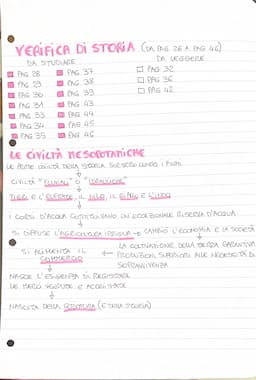 VERIFICA DI STORIA (DA PAG 26 A PAG 46)
DA STUDIARE
DA LEGGERE
PAG 28 PAG. 37 PAG 32
PAG 29 PAG. 38 PAG 36
PAG 30 PAG. 39 PAG 42
PAG 31 PAG. 43
PAG 33 PAG 44
PAG 34 PAG 45
PAG 35 PAG 46
LE CIVILTÀ MESOPOTAMICHE
LE PRIME CIVILTÀ DELLA STORIA SORSERO LUNGO I FIUMI
CIVILTÀ "FLUVIALI" O "IDRAULICHE"
TIGRI E L'EUFRATE, IL NILO, IL GIALLO E L'INDO
I CORSI D'ACQUA COSTITUIVANO UN ECCEZIONALE RISERVA D'ACQUA
SI DIFFUSE L'AGRICOLTURA IRRIGUA → CAMBIÒ L'ECONOMIA E LA SOCIETÀ
LA COLTIVAZIONE DELLA TERRA GARANTIVA
SI AUMENTA IL COMMERCIO ← PRODUZIONI SUPERIORI ALLE NECESSITÀ DI
SOPRAVVIVENZA
NASCE L'ESIGENZA DI REGISTRARE
LE MERCI VENDUTE E ACQUISTATE
NASCITA DELLA SCRITTURA (E DELLA STORIA)